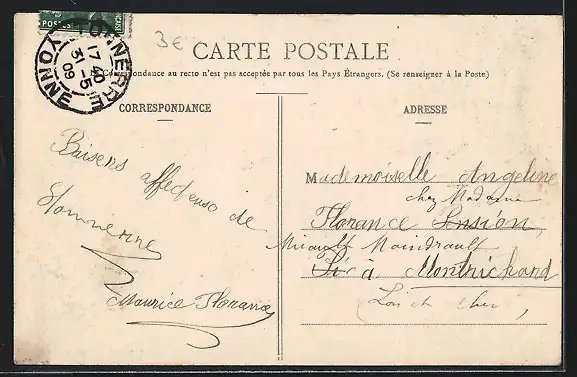 POSTES
TONNERRE
17 40
31-5
09
YONNE
3€
CARTE POSTALE
La Correspondance au recto n'est pas acceptée par tous les Pays Étrangers. (Se renseigner à la Poste)
CORRESPONDANCE
Baisers affectueuse de
Tonnerre
Maurice Florance
ADRESSE
Mademoiselle Angeline
chez Madame
Florance Pension,
Mirault
à Montrichard
Loir et Cher,